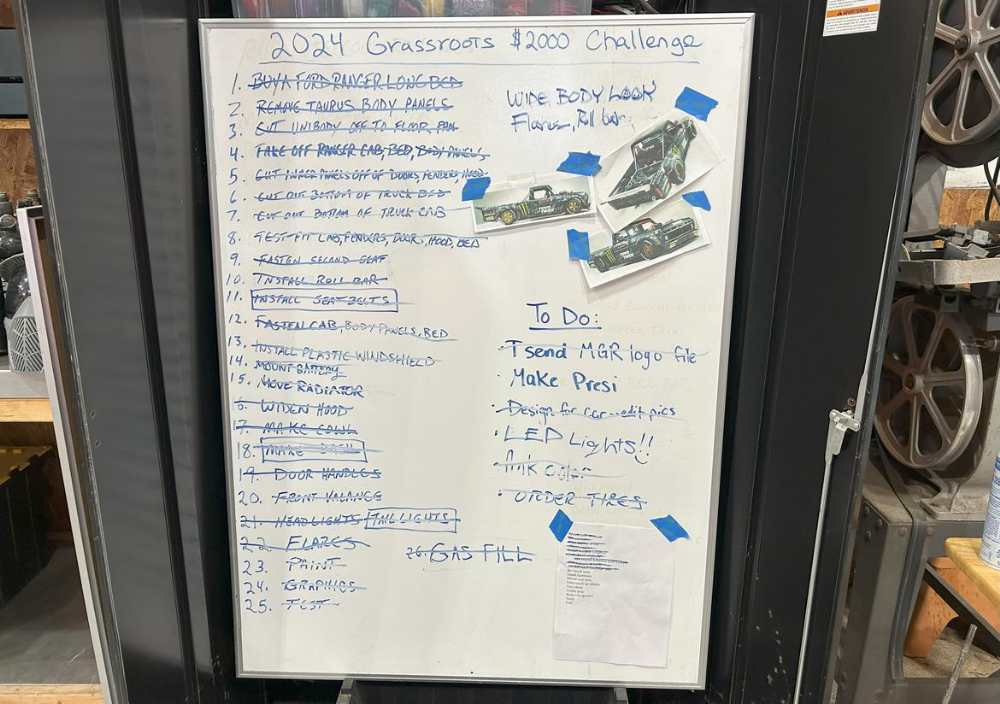 2024 Grassroots $2000 Challenge
1. BUY A FORD RANGER LONG BED
2. REMOVE TAURUS BODY PANELS
3. CUT UNIBODY OFF TO FLOOR PAN
4. TAKE OFF RANGER CAB, BED, BODY PANELS
5. CUT INNER PANELS OFF OF DOORS, FENDERS, HOOD
6. CUT OUT BOTTOM OF TRUCK BED
7. CUT OUT BOTTOM OF TRUCK CAB
8. TEST-FIT CAB, FENDERS, DOOR, HOOD, BED
9. FASTEN SECOND SEAT
10. INSTALL ROLL BAR
11. INSTALL SEAT BELTS
12. FASTEN CAB, BODY PANELS, BED
13. INSTALL PLASTIC WINDSHIELD
14. MOUNT BATTERY
15. MOVE RADIATOR
16. WIDEN HOOD
17. MAKE COWL
18. MAKE DASH
19. DOOR HANDLES
20. FRONT VALANCE
21. HEADLIGHTS TAIL LIGHTS
22. FLARES
23. PAINT
24. GRAPHICS
25. TEST
26. GAS FILL
WIDE BODY LOOK
Flares, Roll bar
To Do:
• T send MGR logo file
• Make Presi
• Design for car - edit pics
• LED Lights!!
• Pink color
• ORDER TIRES
ADVERTENCIA